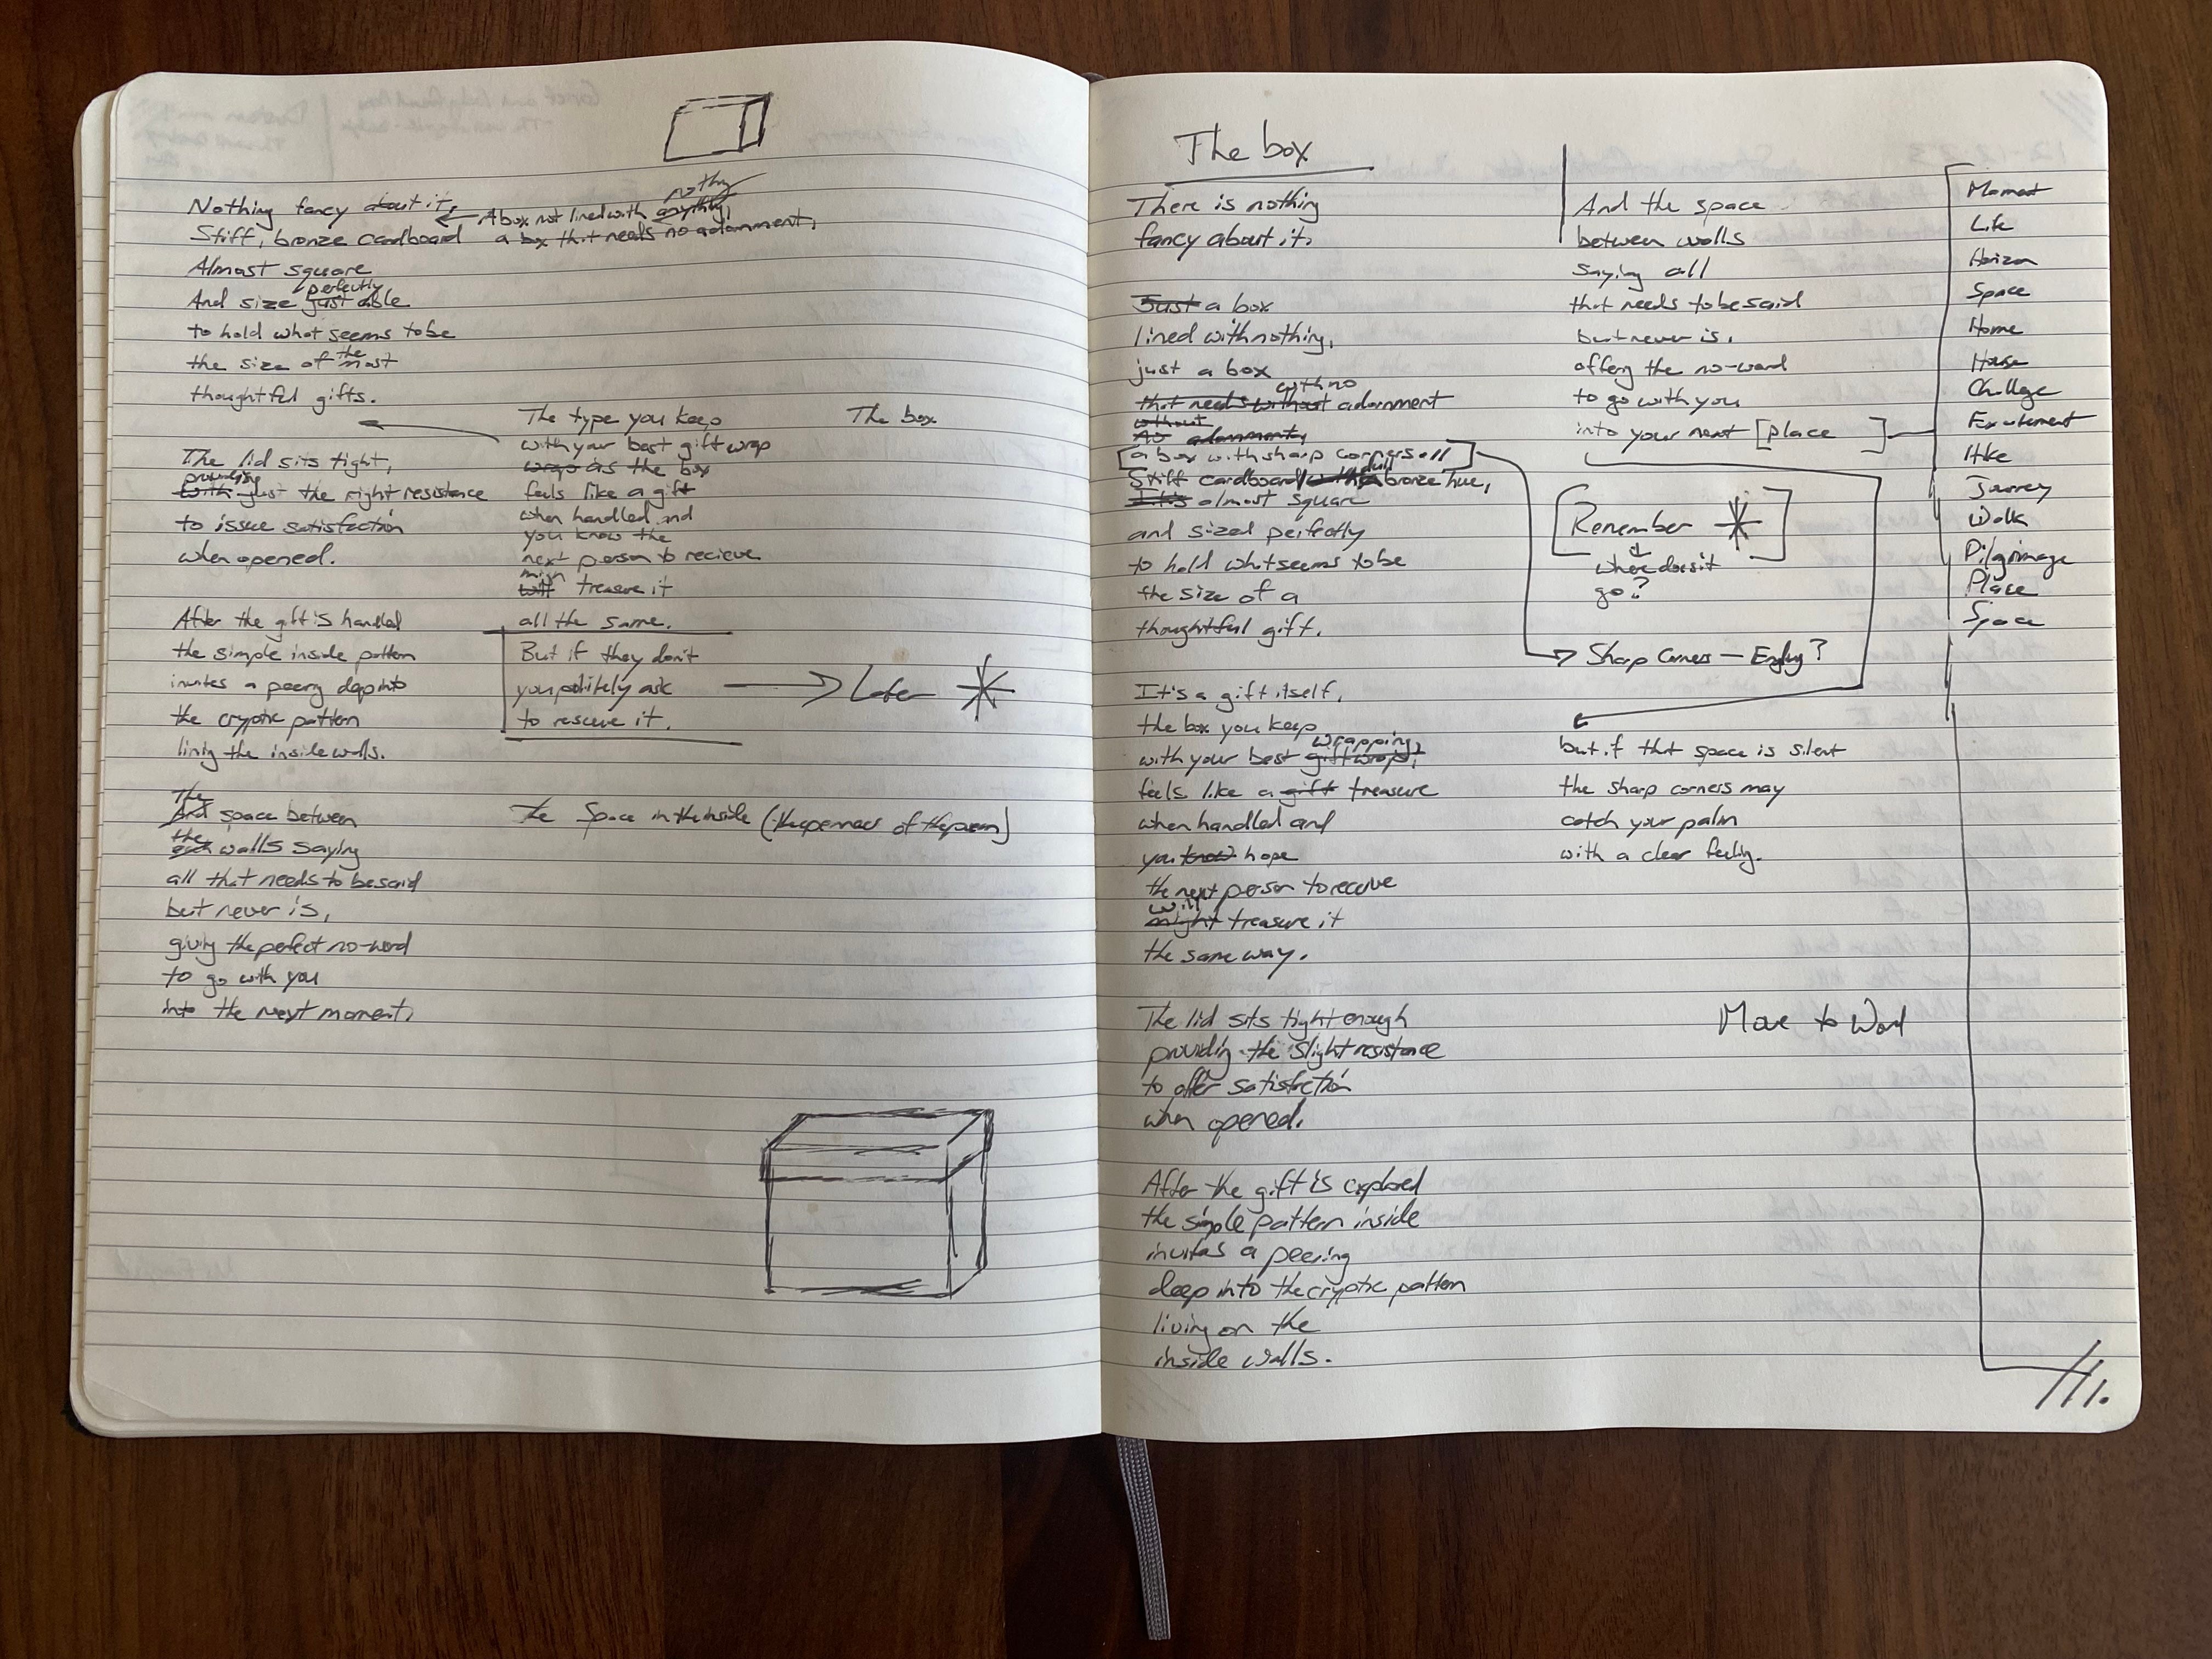 Nothing fancy about it,
A box not lined with anything,
nothg
Stiff, bronze cardboard
a box that needs no adornment,
Almost square
perfectly
And size just able
to hold what seems to be
the
the size of most
thoughtful gifts.
The type you keep
with your best gift wrap
wrap as the box
feels like a gift
when handled and
you know the
next person to recieve
will treasure it
all the same.
But if they don't
you politely ask
to rescue it.
Later
The box
The lid sits tight,
providing
with just the right resistance
to issue satisfaction
when opened.
After the gift is handled
the simple inside pattern
invites a peerg deep into
the cryptic pattern
living the inside walls.
The
And space between
the
each walls saying
all that needs to be said
but never is,
giving the perfect no-word
to go with you
into the next moment,
The Space in the inside (the openness of the poem)
The box
There is nothing
fancy about it,
Just a box
lined with nothing,
just a box
with no
that needs without adornment
without
No adornment,
a box with sharp corners
Stiff cardboard with a dull bronze hue,
It's almost square
and sized perfectly
to hold what seems to be
the size of a
thoughtful gift.
It's a gift itself,
the box you keep
wrapping,
with your best gift wrap,
feels like a gift treasure
when handled and
you know hope
the next person to receive
will
might treasure it
the same way.
The lid sits tight enough
providing the slight resistance
to offer satisfaction
when opened.
After the gift is explored
the simple pattern inside
invites a peering
deep into the cryptic pattern
living on the
inside walls.
And the space
between walls
saying all
that needs to be said
but never is,
offerg the no-word
to go with you
into your next [place ]
Remember
where does it
go?
Sharp Corners — Endg?
but if that space is silent
the sharp corners may
catch your palm
with a clear feelig.
Moment
Life
Horizon
Space
Home
House
Challege
Excitement
Hike
Journey
Walk
Pilgrimage
Place
Space
Move to Word